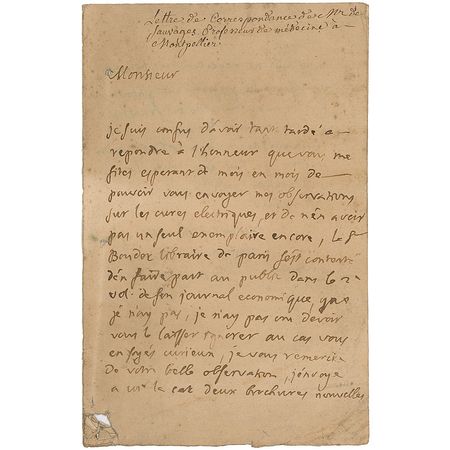 Lettre de Correspondance de Mr de
Sauvages Professeur de médecine à
Montpellier.
Monsieur
je suis confus d'avoir tant tardé a
repondre à l'honneur que vous me
fites esperant de mois en mois de
pouvoir vous envoyer mes observations
sur les cures electriques, et de n'en avoir
pas un seul exemplaire encore, Le Sr
Boudot libraire de paris s'est contenté
d'en faire part au public dans le 2
vol. de son journal economique, que
je n'ay pas, je n'ay pas cru devoir
vous le laisser ignorer au cas vous
en soyés curieux, je vous remercie
de votre belle observation, j'envoye
a deux brochures nouvelles